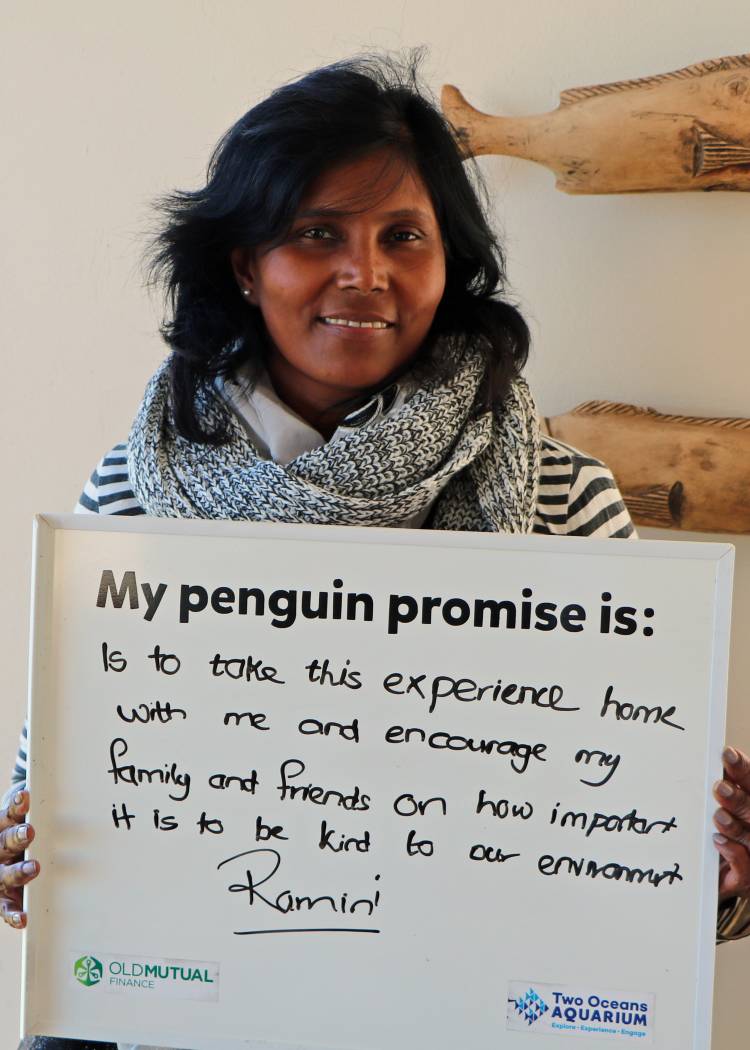 My penguin promise is:
Is to take this experience home
with me and encourage my
family and friends on how important
it is to be kind to our environment
Ramini
OLDMUTUAL
FINANCE
Two Oceans
AQUARIUM
Explore • Experience • Engage